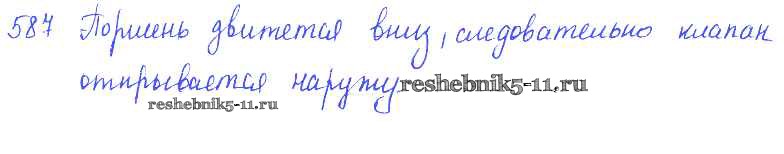 587 Поршень движется вниз, следовательно клапан
открывается наружу reshebnik5-11.ru
reshebnik5-11.ru